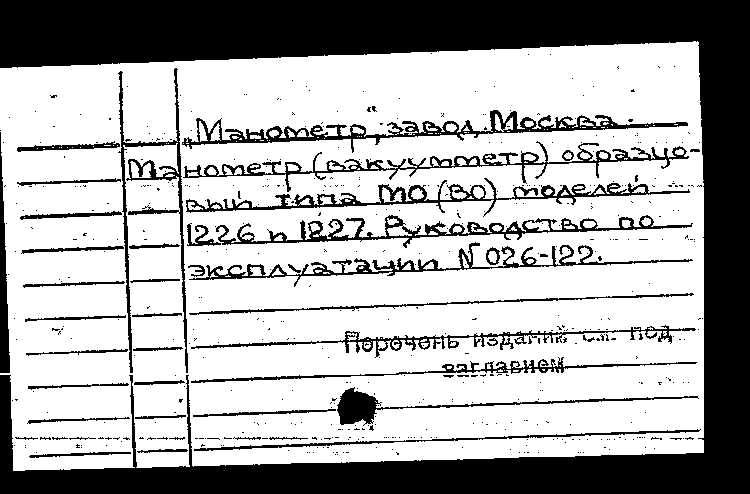 „Манометр“, завод. Москва.
Манометр (вакуумметр) образцо-
вый типа МО (ВО) моделей
1226 и 1227. Руководство по
эксплуатации N 026-122.
Перечень изданий см. под
заглавием